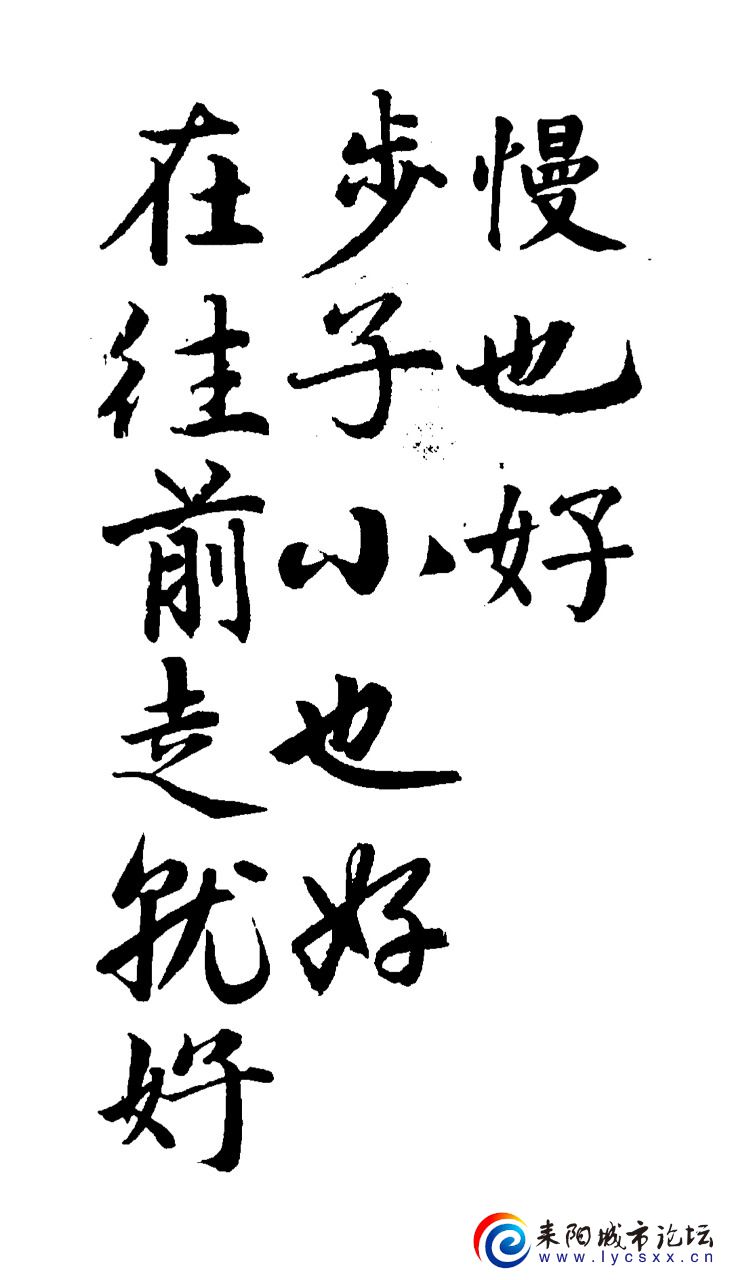 慢也好
步子小也好
在往前走就好
耒阳城市论坛
www.lycsxx.cn